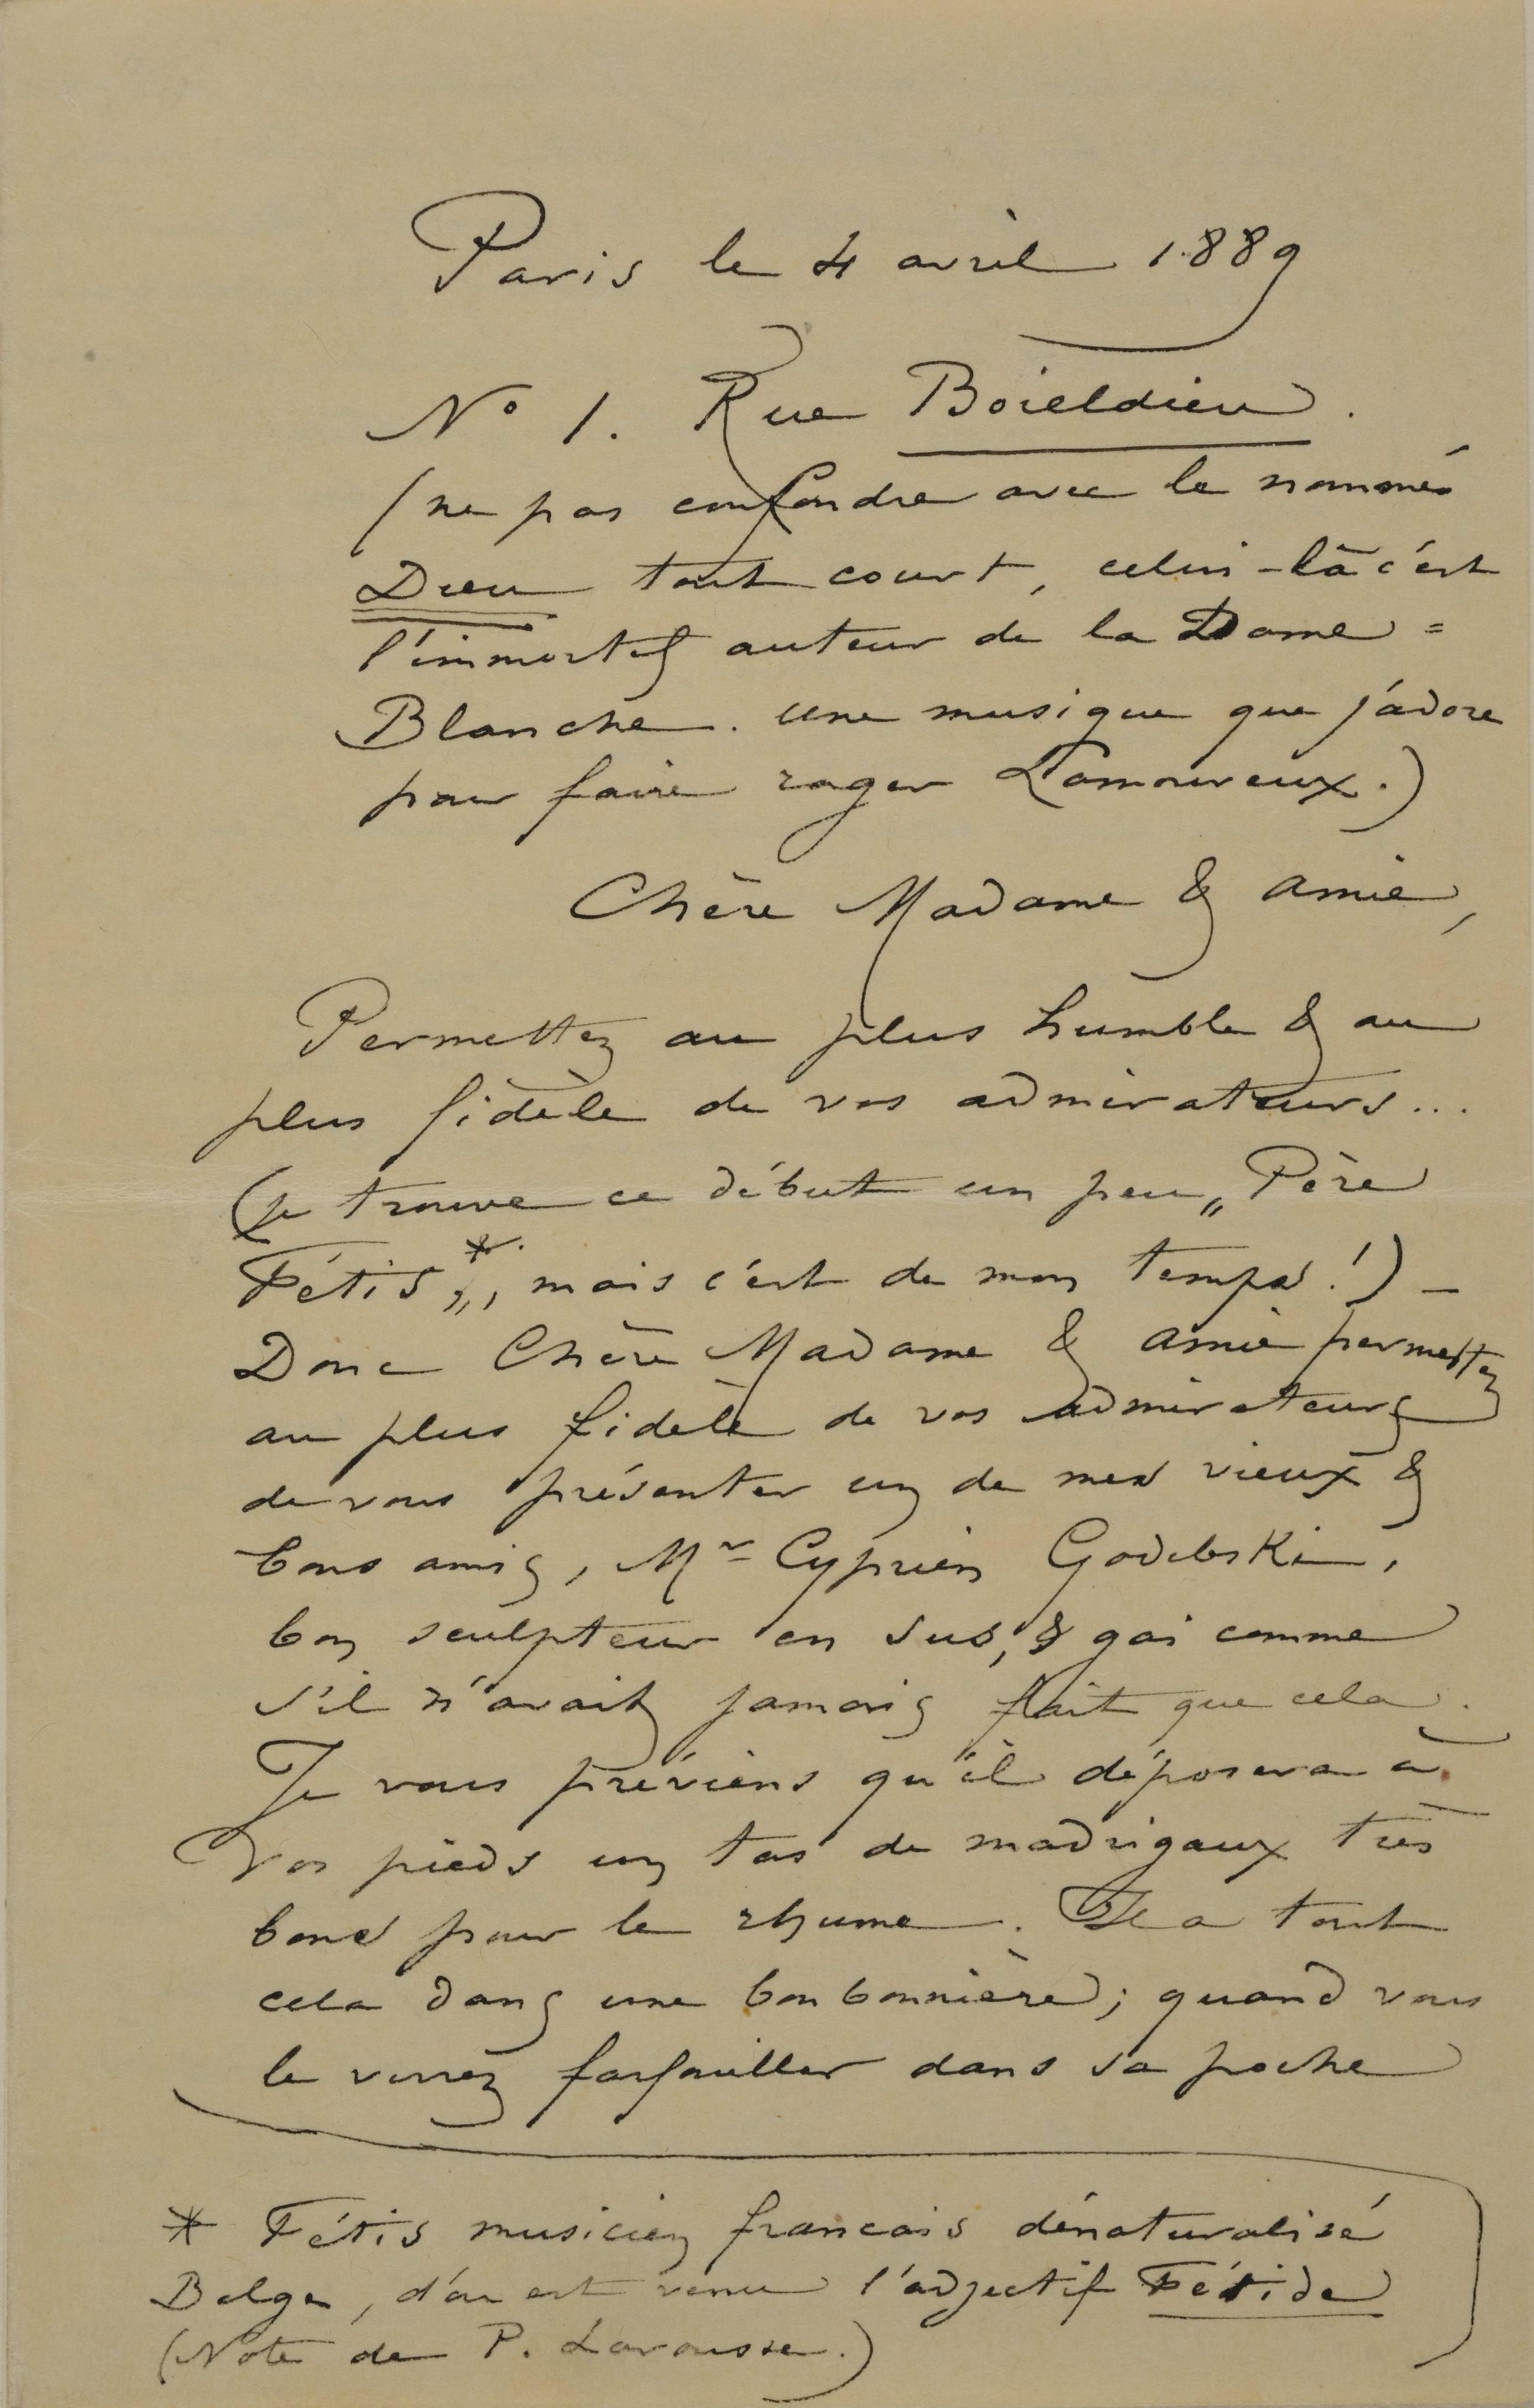 Paris le 4 avril 1889
N° 1. Rue Boieldieu.
(ne pas confondre avec le nommé
Dieu tout court, celui-là c'est
l'immortel auteur de la Dame=
Blanche. une musique que j'adore
pour faire rager Lamoureux.)
Chère Madame & amie,
Permettez au plus humble & au
plus fidèle de vos admirateurs...
(je trouve ce début un peu „Père
Fétis„*, mais c'est de mon temps!) –
Donc Chère Madame & amie permettez
au plus fidèle de vos admirateurs
de vous présenter un de mes vieux &
bons amis, Mr Cyprien Godebski,
bon sculpteur en sus, & gai comme
s'il n'avait jamais fait que cela.
Je vous préviens qu'il déposera à
vos pieds un tas de madrigaux très
bons pour le rhume. Il a tout
cela dans une bonbonnière; quand vous
le verrez farfouiller dans sa poche
* Fétis musicien francais dénaturalisé
Belge, d'ou est venu l'adjectif Fétide
(Note de P. Larousse.)